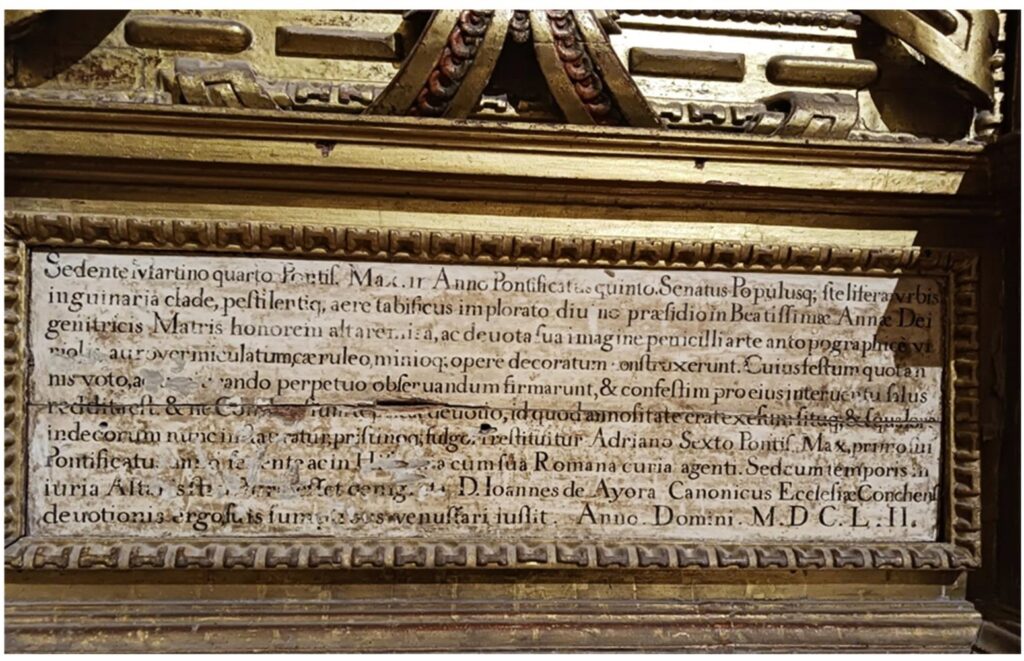 Sedente Martino quarto Pontif. Max. Anno Pontificatus quinto. Senatus Populusq; ſte litera vrbis
inguinaria clade, peſtilentiq, aere tabificus implorato diu no præſidio in Beatiſſimæ Annæ Dei
genitricis Matris honorem altare ac deuota ſua imagine penicilli arte antopographicè
auro vermiculatum, cæruleo, minioq; opere decoratum conſtruxerunt. Cuius feſtum quotan
nis voto, ando perpetuo obſeruandum firmarunt, & confeſtim pro eius interuentu ſalus
reddita eſt. & ne deuotio, id quod annoſitate crat exeſum ſituq; & ſqualore
indecorum nunc priſtinoq; fulgo. reſtituitur Adriano Sexto Pontif. Max, primo ſui
Pontificatu. ac in cum ſua Romana curia agenti. Sed cum temporis in
iuria Altar D. Ioannes de Ayora Canonicus Eccleſiæ Conchenſ
deuotionis ergo ſuis venuſtari iuſſit. Anno Domini. M.D C.L.II.